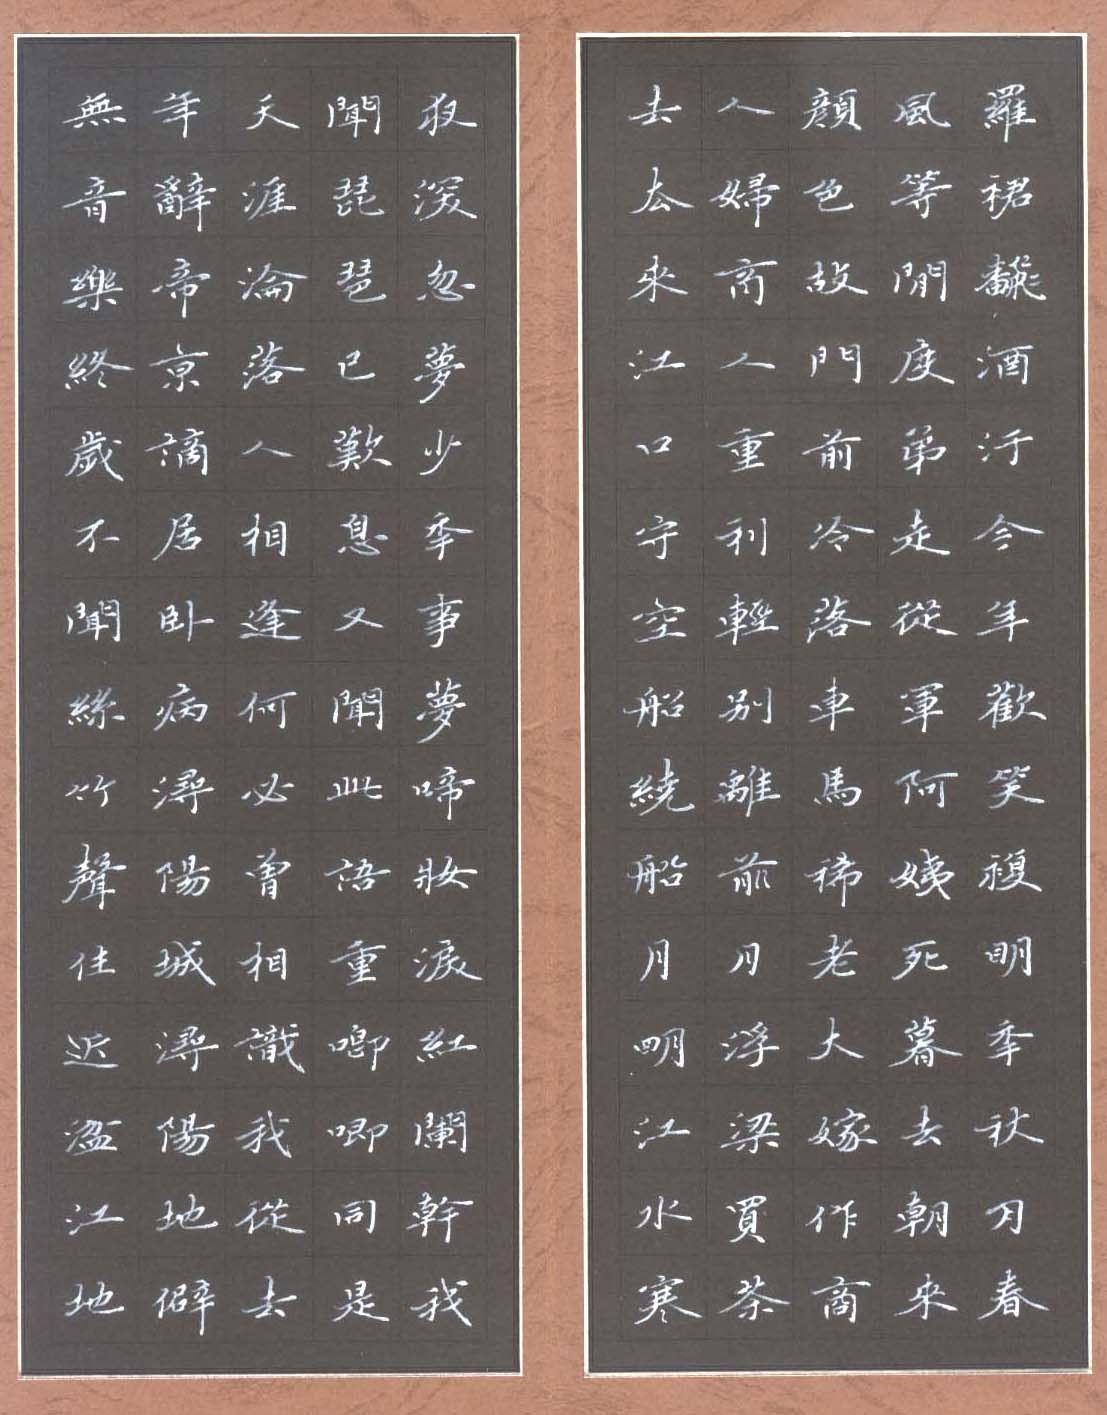 羅裙飜酒汙今年歡笑複明季秋月春
風等閒度弟走從軍阿姨死暮去朝來
顏色故門前冷落車馬稀老大嫁作商
人婦商人重利輕別離前月浮梁買茶
去去來江口守空船繞船月明江水寒
夜深忽夢少季事夢啼妝淚紅闌幹我
聞琵琶已歎息又聞此語重唧唧同是
天涯淪落人相逢何必曾相識我從去
年辭帝京謫居卧病潯陽城潯陽地僻
無音樂終歲不聞絲竹聲住近湓江地